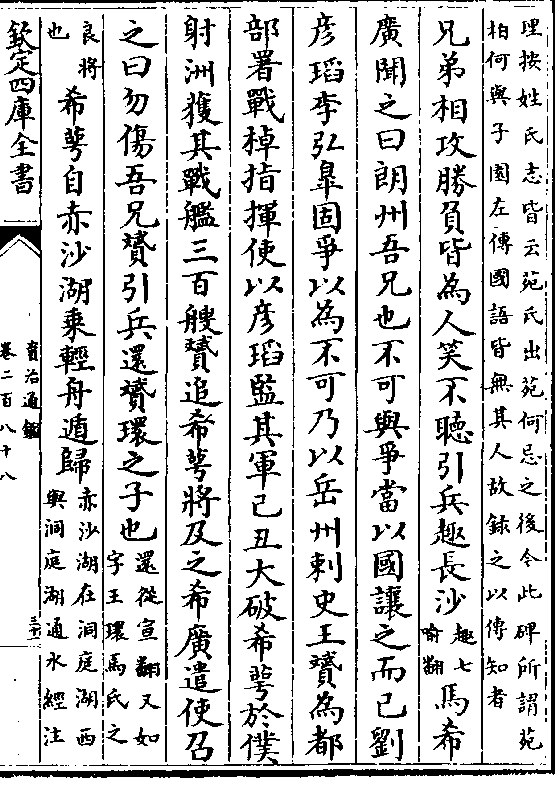 理按姓氏志皆云苑氏出苑何忌之後今此碑所謂苑
柏何與子園左傳國語皆無其人故録之以傳知者
兄弟相攻勝負皆為人笑不聽引兵趣長沙趣七喻翻馬希
廣聞之曰朗州吾兄也不可與爭當以國讓之而已劉
彦瑫李弘臯固爭以為不可乃以岳州刺史王贇為都
部署戰棹指揮使以彦瑫監其軍己丑大破希萼於僕
射洲獲其戰艦三百艘贇追希萼將及之希廣遣使召
之曰勿傷吾兄贇引兵還贇環之子也還從宣翻又如字王環馬氏之
良將也希萼自赤沙湖乗輕舟遁歸赤沙湖在洞庭湖西與洞庭湖通水經注
欽定四庫全書
資治通鑑
卷二百八十八